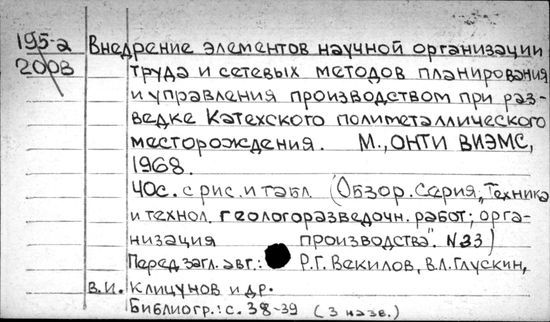 195-2 Внедрение элементов научной организации
2003 труда и сетевых методов планирования
и управления производством при раз-
ведке Катехского полиметаллического
месторождения. М., ОНТИ ВИЭМС,
1968.
40с. с рис. и табл (Обзор. Серия „Техника
и технол. геологоразведочн. работ; орга-
низация производства". N33)
Перед загл. авт.: Р.Г. Векилов, В.Л. Глускин,
В.И. Клицунов и др.
Библиогр.: с. 38-39 (3 назв.)